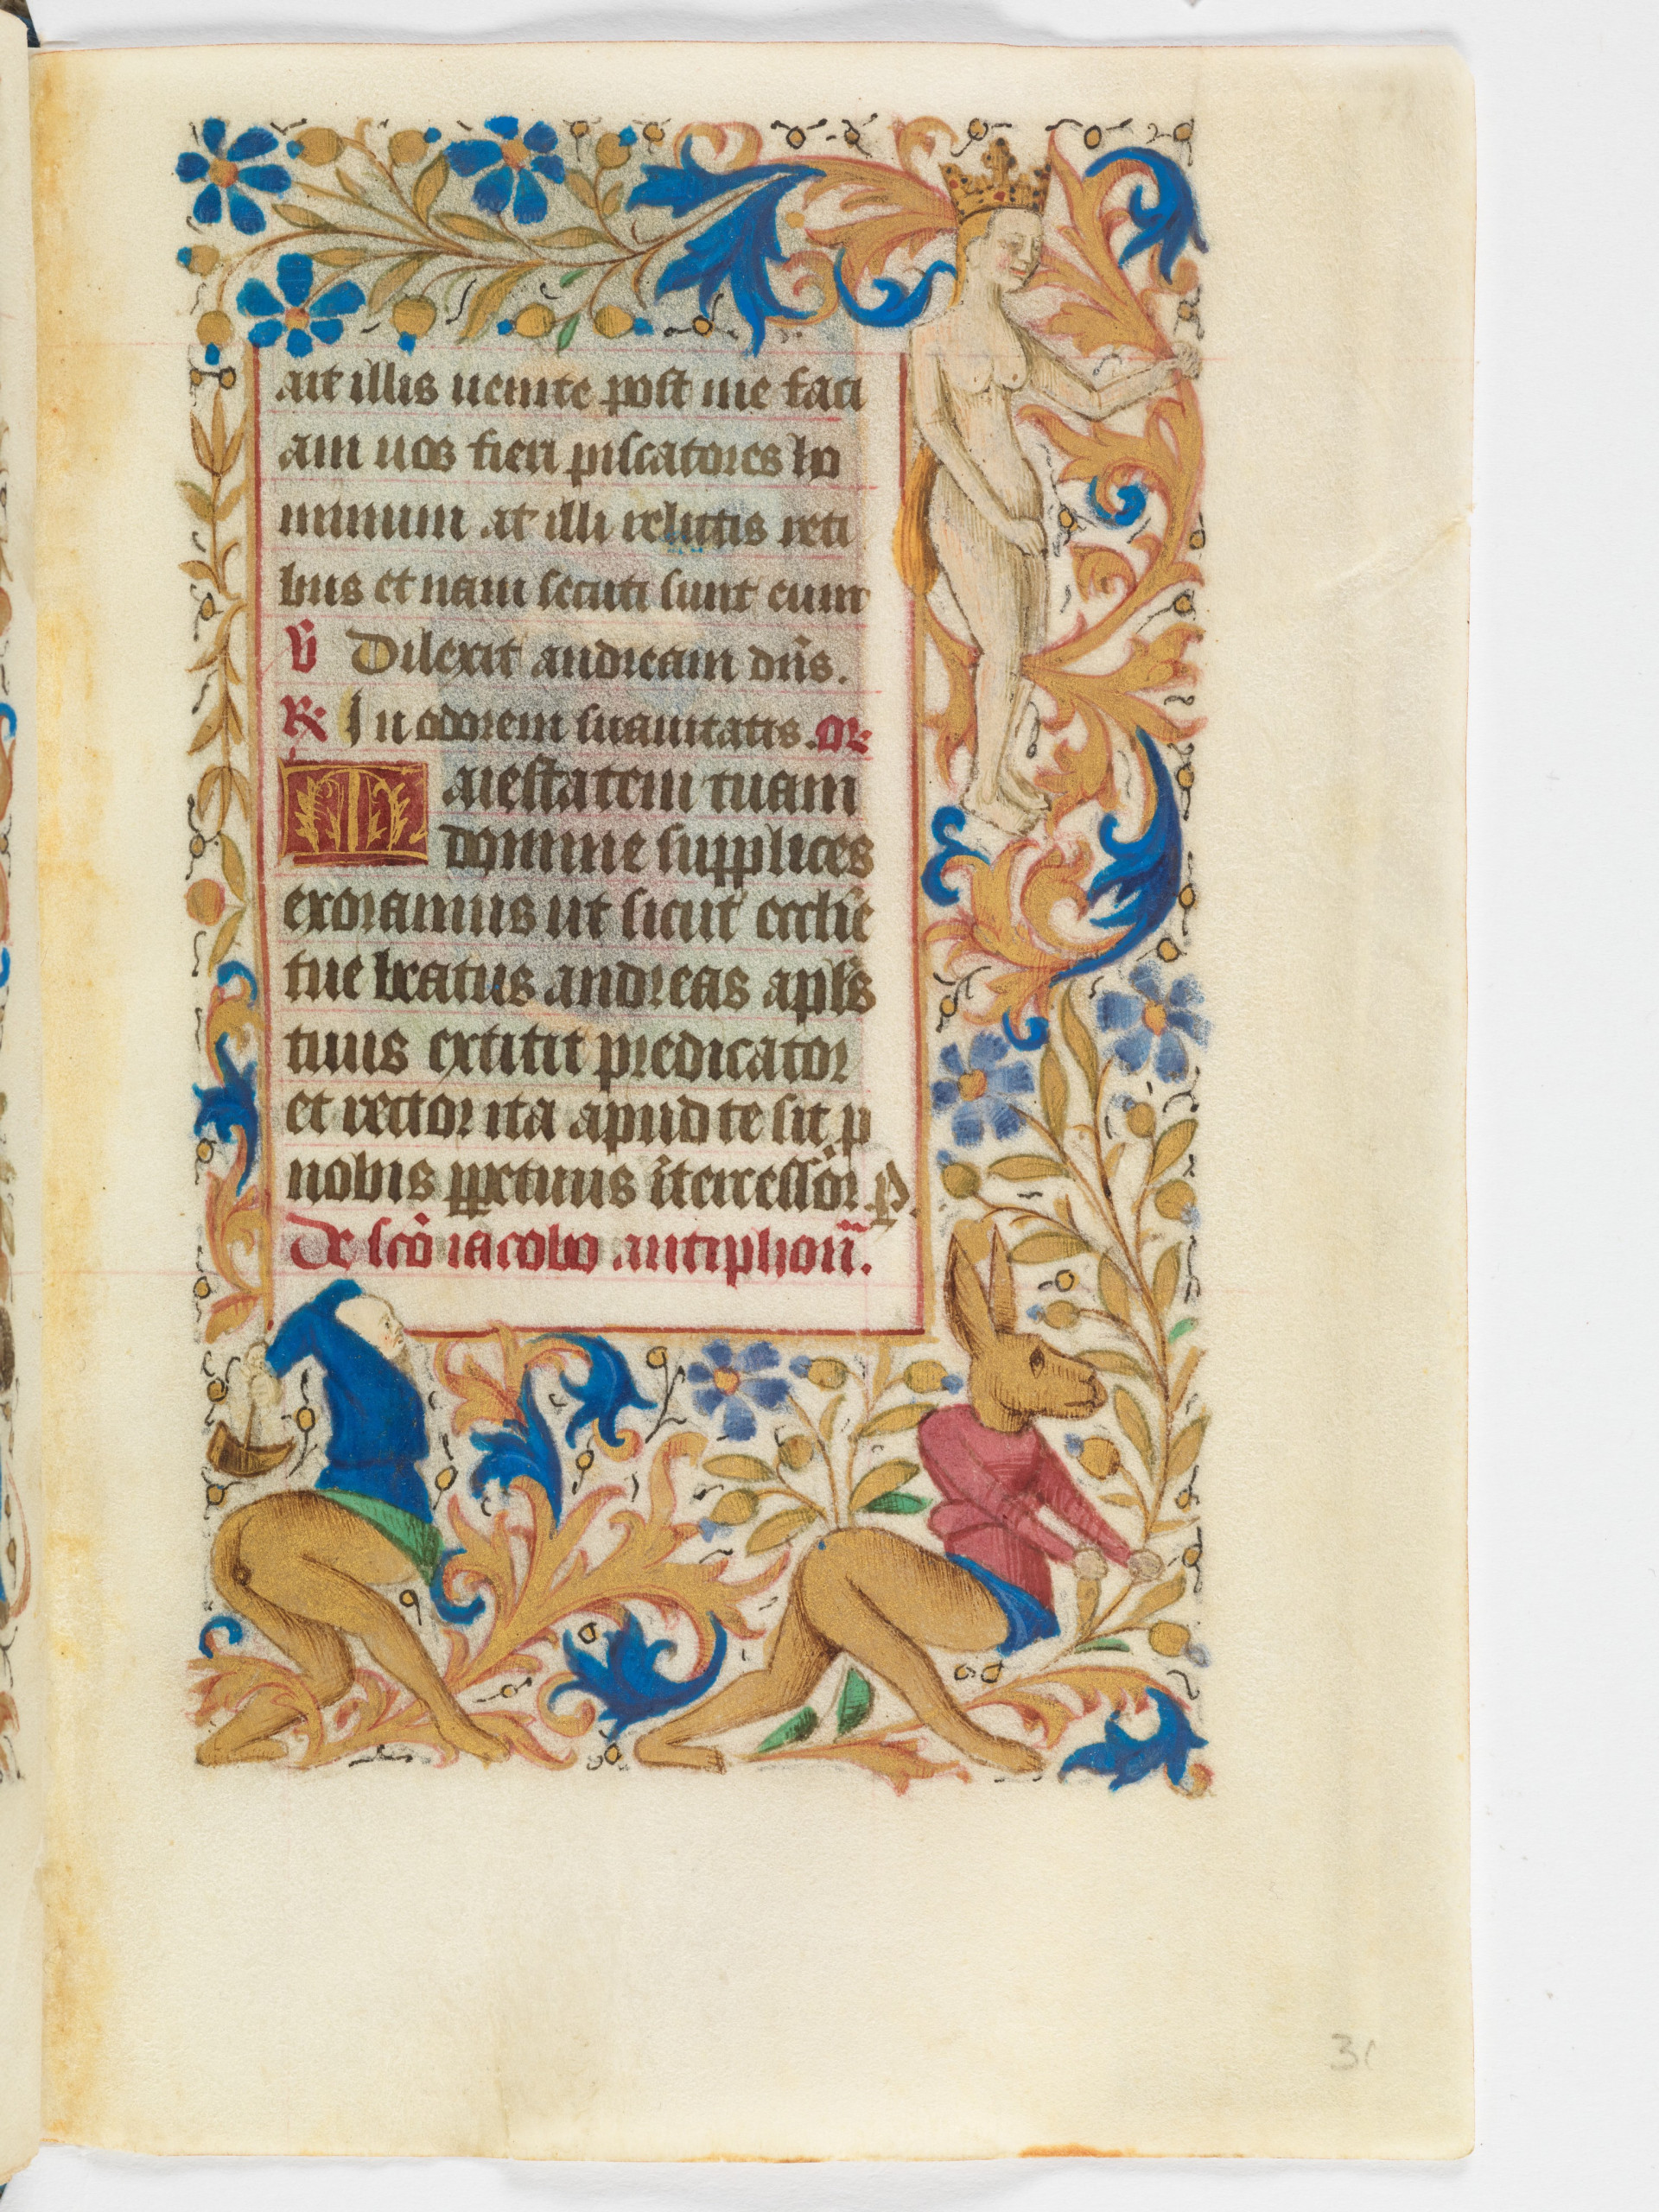 ait illis uenite post me faci
am uos fieri piscatores ho
minum at illi relictis reti
bus et nam secuti sunt eum
V̄ Dilexit andream dn̄s.
R̷ In odorem suauitatis. or̄
Maiestatem tuam
domine supplices
exoramus ut sicut eccłie
tue beatus andreas apłs
tuus extitit predicator
et rector ita apud te sit p
nobis ꝑpetuus ītercessor. ꝑ.
De scō iacobo antiphon̄.
31